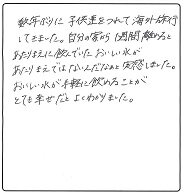 数年ぶりに子供達をつれて海外旅行
してきました。自分の家から1週間離れると
あたりまえに飲んでいたおいしい水が
あたりまえではないんだなぁと実感しました。
おいしい水が手軽に飲めることが
とても幸せだとよくわかりました。